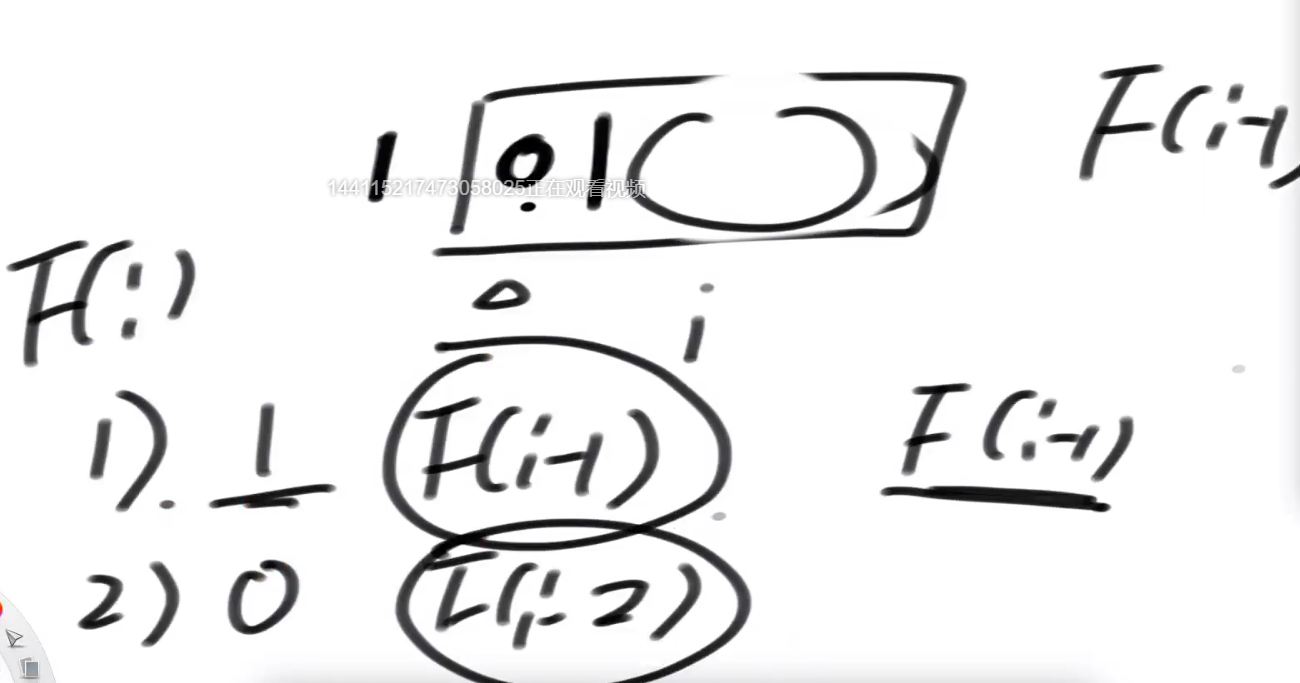 1 0 1 F(i-1)
144115217473058025正在观看视频
F(i) 0 i
1). 1 F(i-1) F(i-1)
2) 0 F(i-2)